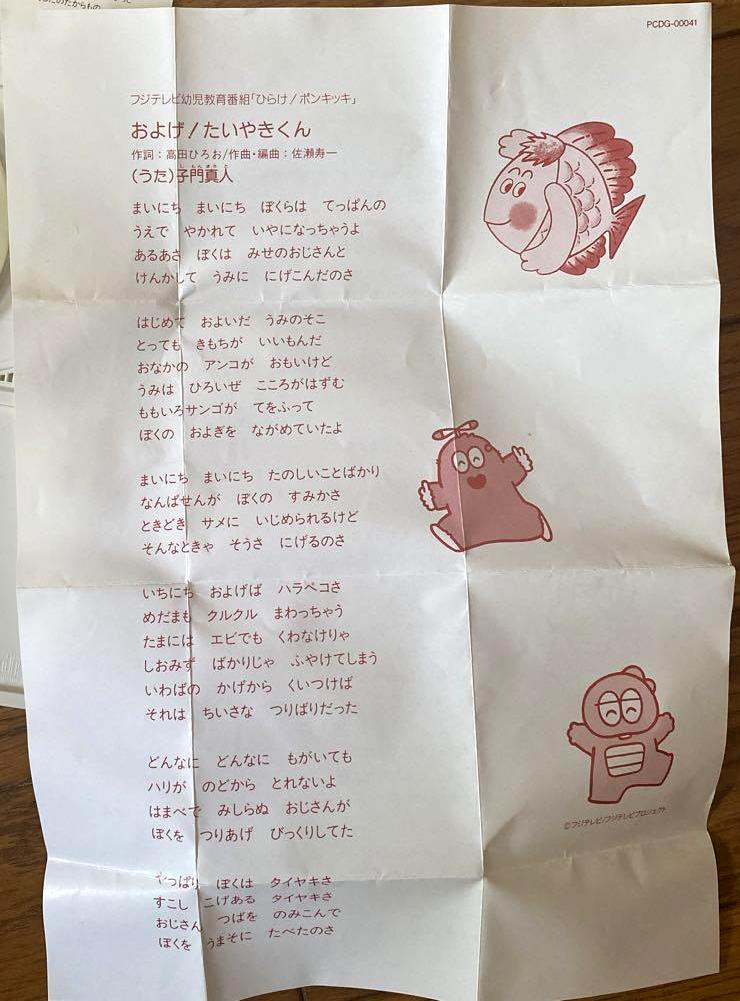 じのたからもの
PCDG-00041
フジテレビ幼児教育番組「ひらけ!ポンキッキ」
およげ!たいやきくん
作詞：高田ひろお/作曲・編曲：佐瀬寿一
(うた)子門真人
まいにち まいにち ぼくらは てっぱんの
うえで やかれて いやになっちゃうよ
あるあさ ぼくは みせのおじさんと
けんかして うみに にげこんだのさ
はじめて およいだ うみのそこ
とっても きもちが いいもんだ
おなかの アンコが おもいけど
うみは ひろいぜ こころがはずむ
ももいろサンゴが てをふって
ぼくの およぎを ながめていたよ
まいにち まいにち たのしいことばかり
なんぱせんが ぼくの すみかさ
ときどき サメに いじめられるけど
そんなときゃ そうさ にげるのさ
いちにち およげば ハラペコさ
めだまも クルクル まわっちゃう
たまには エビでも くわなけりゃ
しおみず ばかりじゃ ふやけてしまう
いわばの かげから くいつけば
それは ちいさな つりばりだった
どんなに どんなに もがいても
ハリが のどから とれないよ
はまべで みしらぬ おじさんが
ぼくを つりあげ びっくりしてた
やっぱり ぼくは タイヤキさ
すこし こげある タイヤキさ
おじさん つばを のみこんで
ぼくを うまそに たべたのさ
©フジテレビ/フジテレビプロジェクト